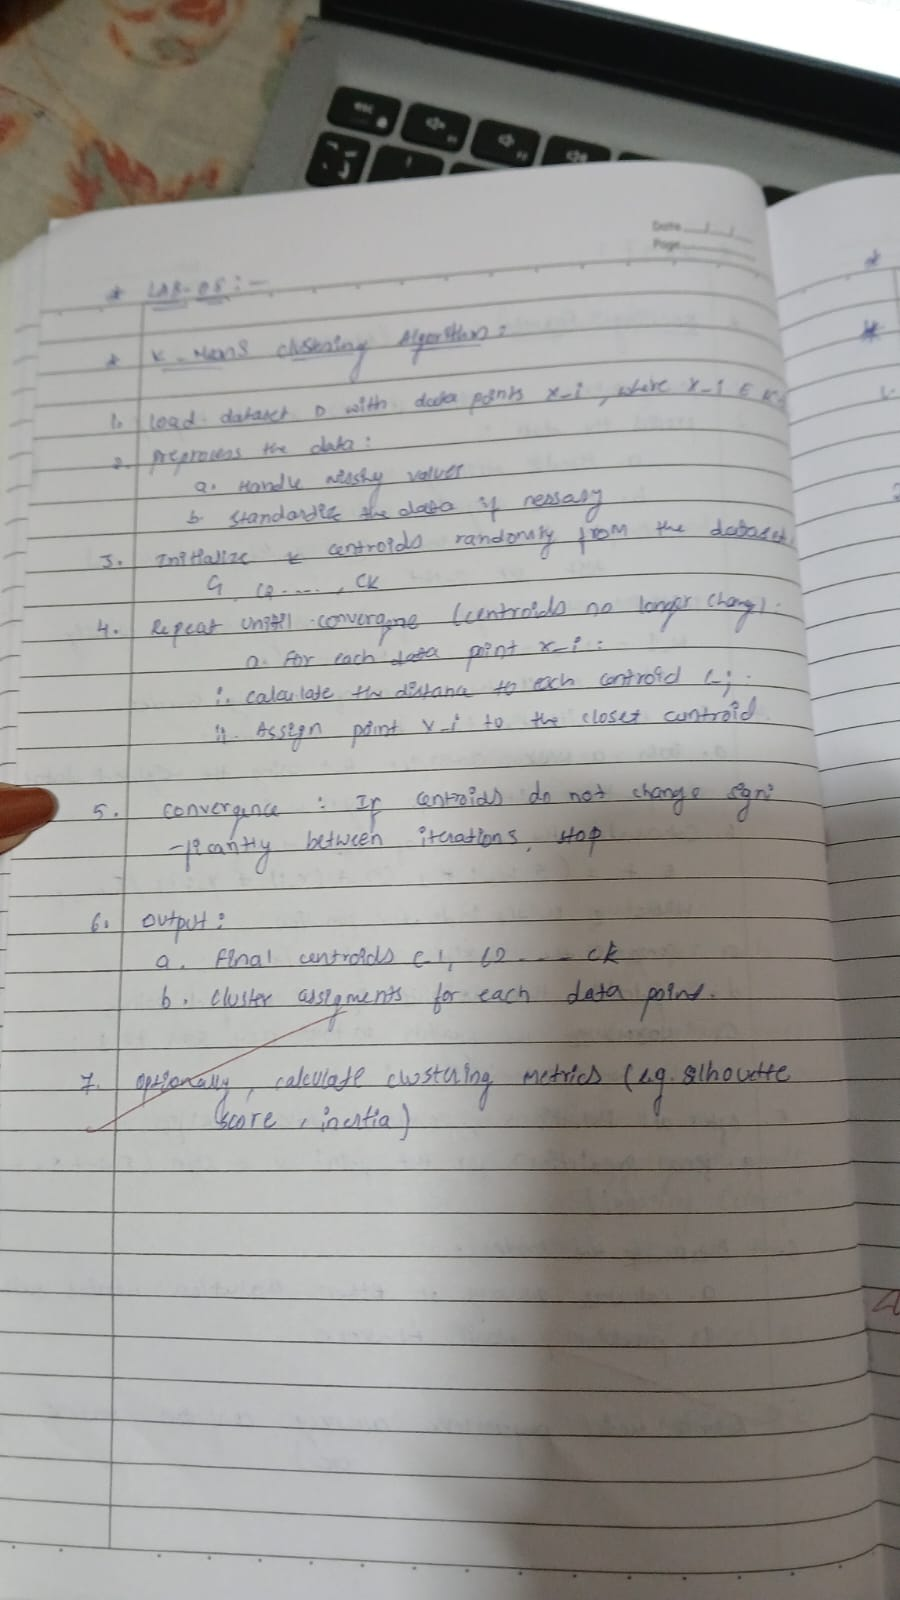 Date
Page
* LAB-05:-
* K-Means clustering Algorithm:
1. Load dataset D with data points x-i, where x-i E
2. Preprocess the data:
a. Handle values
b. Standardize the data if nessary
3. Initialize k centroids randomly from the dataset
C1, C2 ...., CK
4. Repeat until convergne (centroids no longer change).
a. For each data point x-i:
i. calculate the distance to each centroid C-j.
ii. Assign point x-i to the closet centroid
5. convergence: If centroids do not change signi
-ficantly between iterations, stop
6. output:
a. Final centroids c1, c2 --- ck
b. cluster assigments for each data point.
7. optionally, calculate clustering metrics (e.g. silhouette
score, inertia)
esc